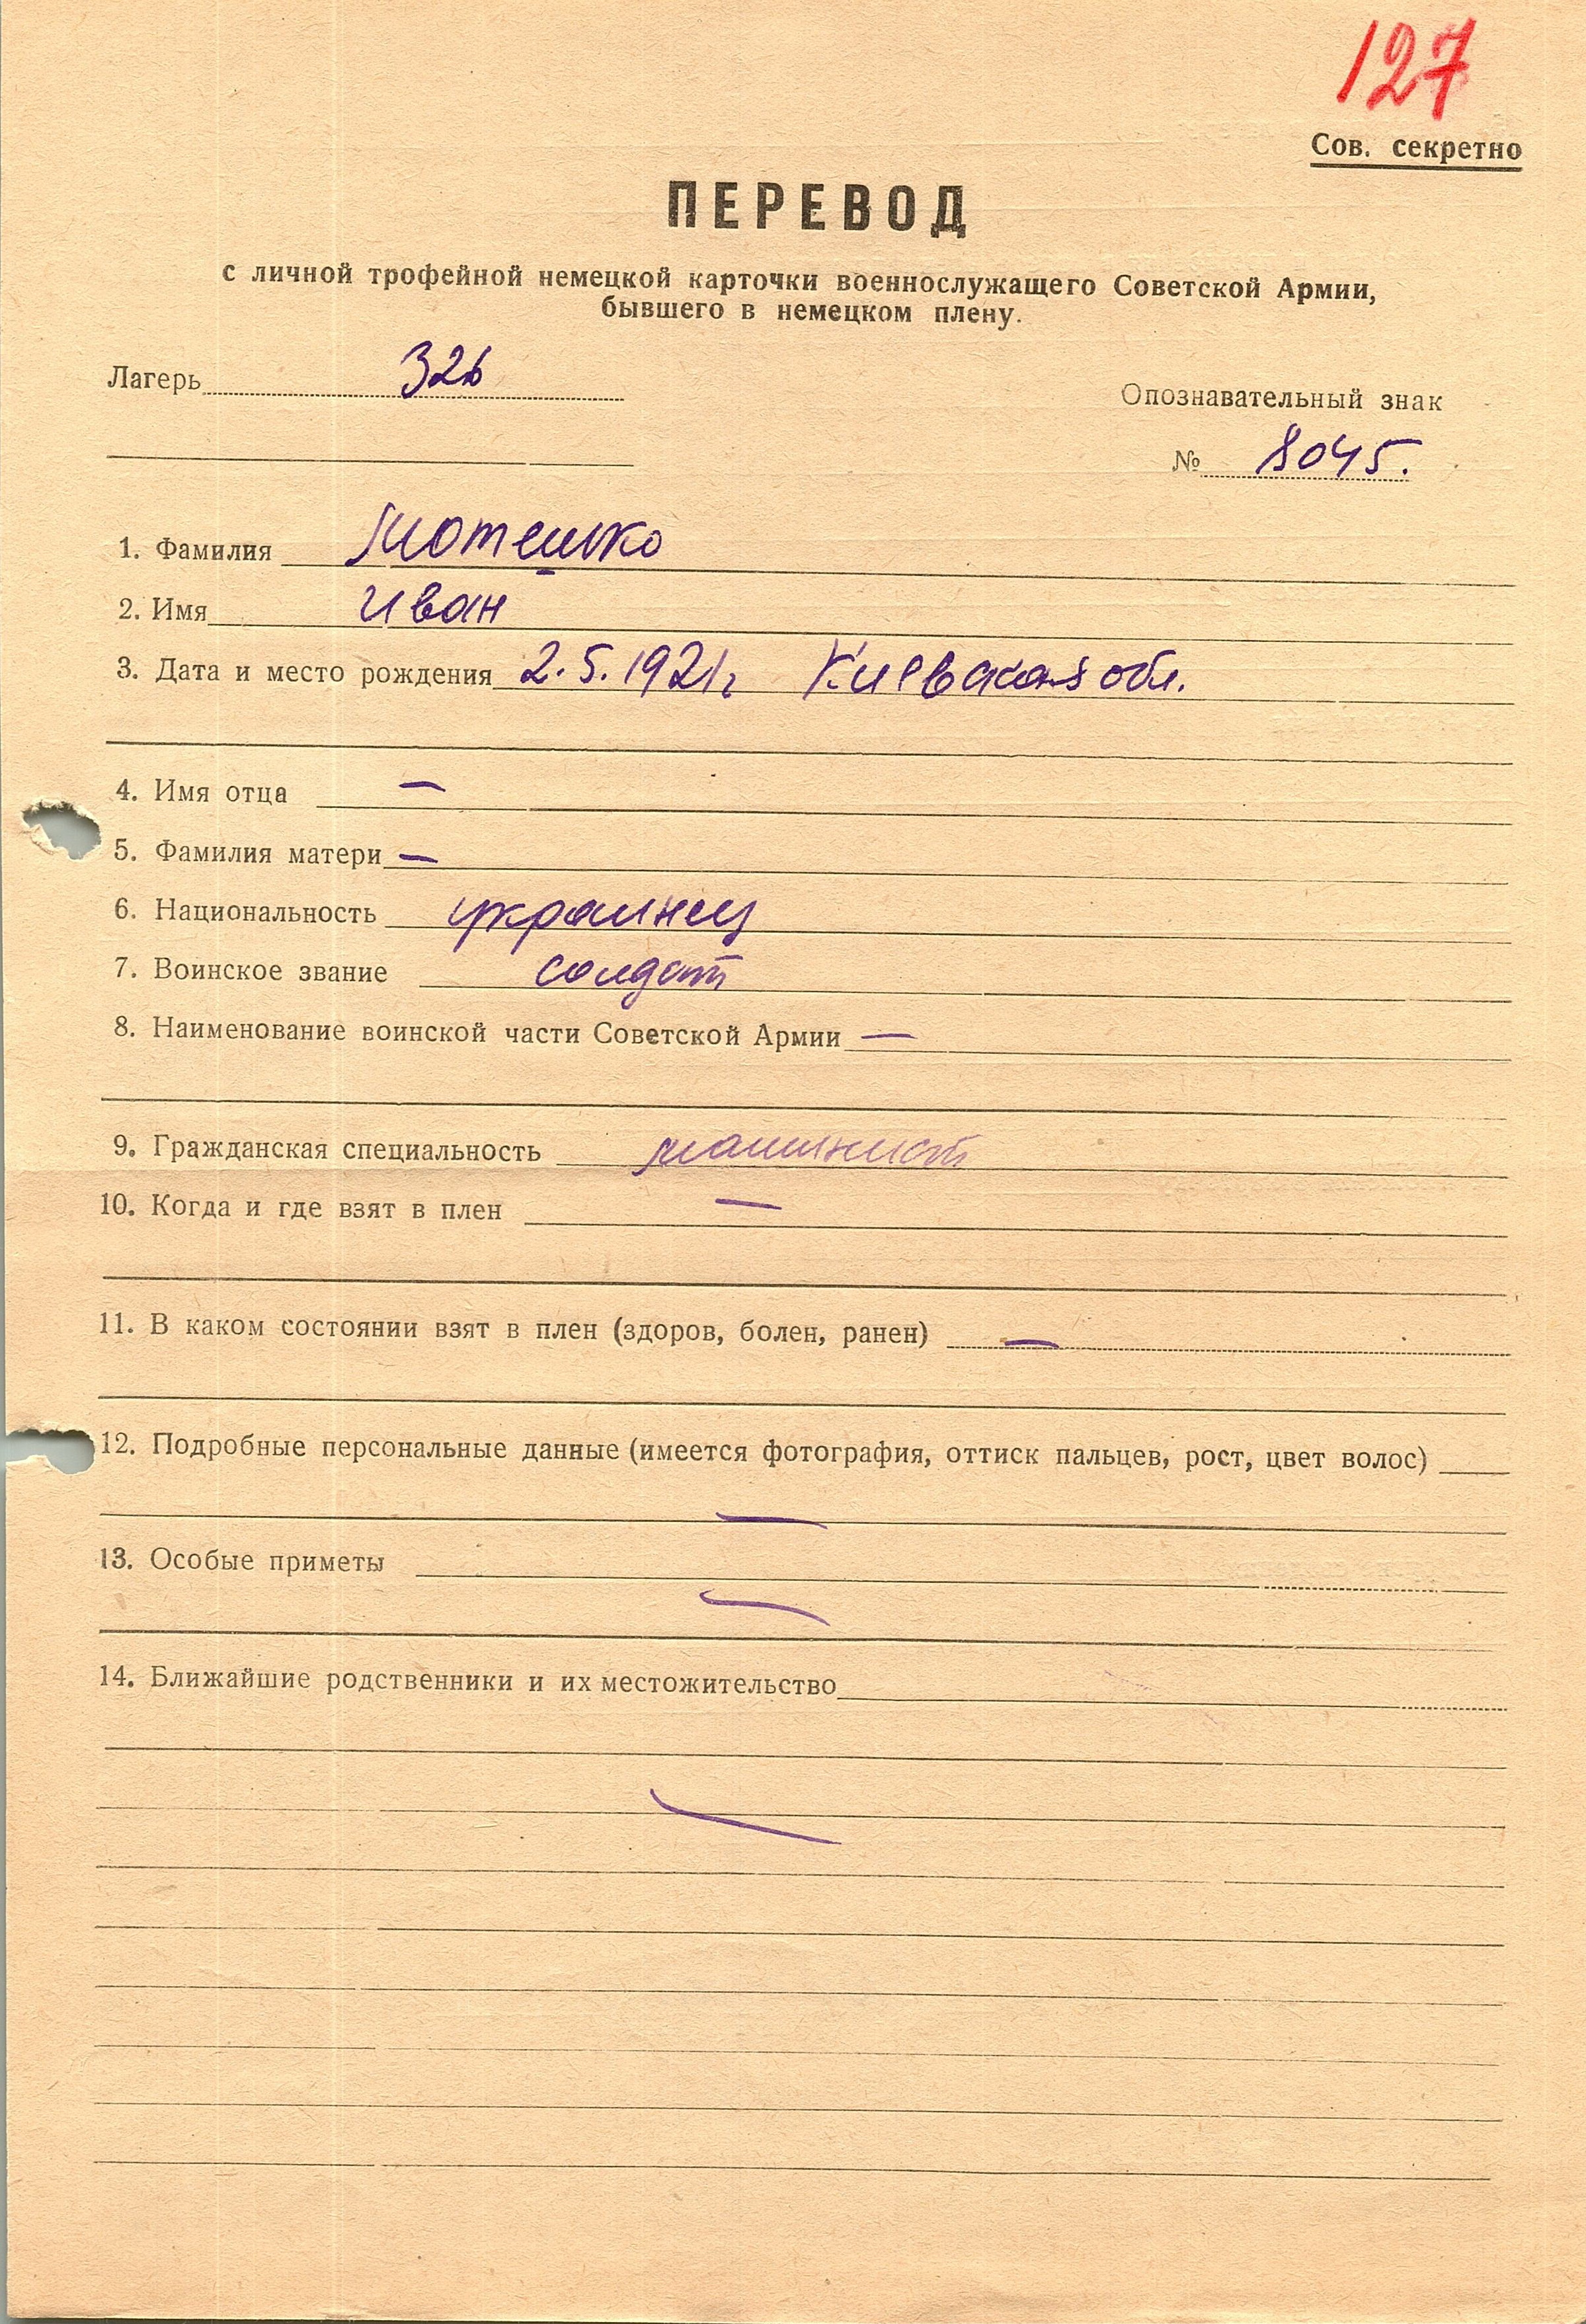 127
Сов. секретно
ПЕРЕВОД
с личной трофейной немецкой карточки военнослужащего Советской Армии,
бывшего в немецком плену.
Лагерь 326
Опознавательный знак
№ 8045.
1. Фамилия Мотешко
2. Имя Иван
3. Дата и место рождения 2.5.1921г Киевская обл.
4. Имя отца —
5. Фамилия матери —
6. Национальность украинец
7. Воинское звание солдат
8. Наименование воинской части Советской Армии —
9. Гражданская специальность машинист
10. Когда и где взят в плен —
11. В каком состоянии взят в плен (здоров, болен, ранен) —
12. Подробные персональные данные (имеется фотография, оттиск пальцев, рост, цвет волос)
—
13. Особые приметы
—
14. Ближайшие родственники и их местожительство
—